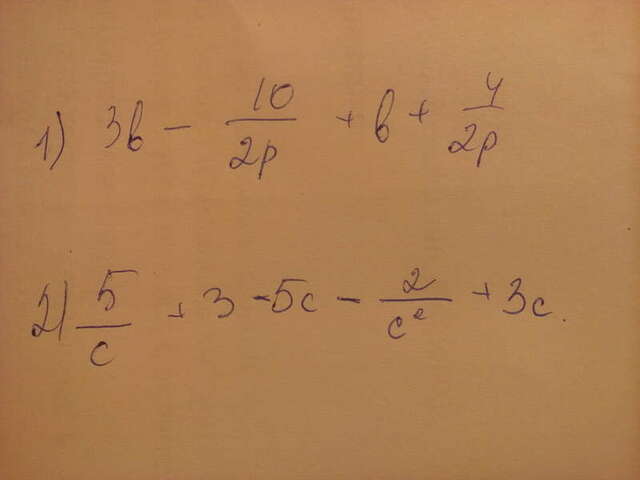 1) 3b - 10/2p + b + 4/2p
2) 5/c + 3 - 5c - 2/c² + 3c